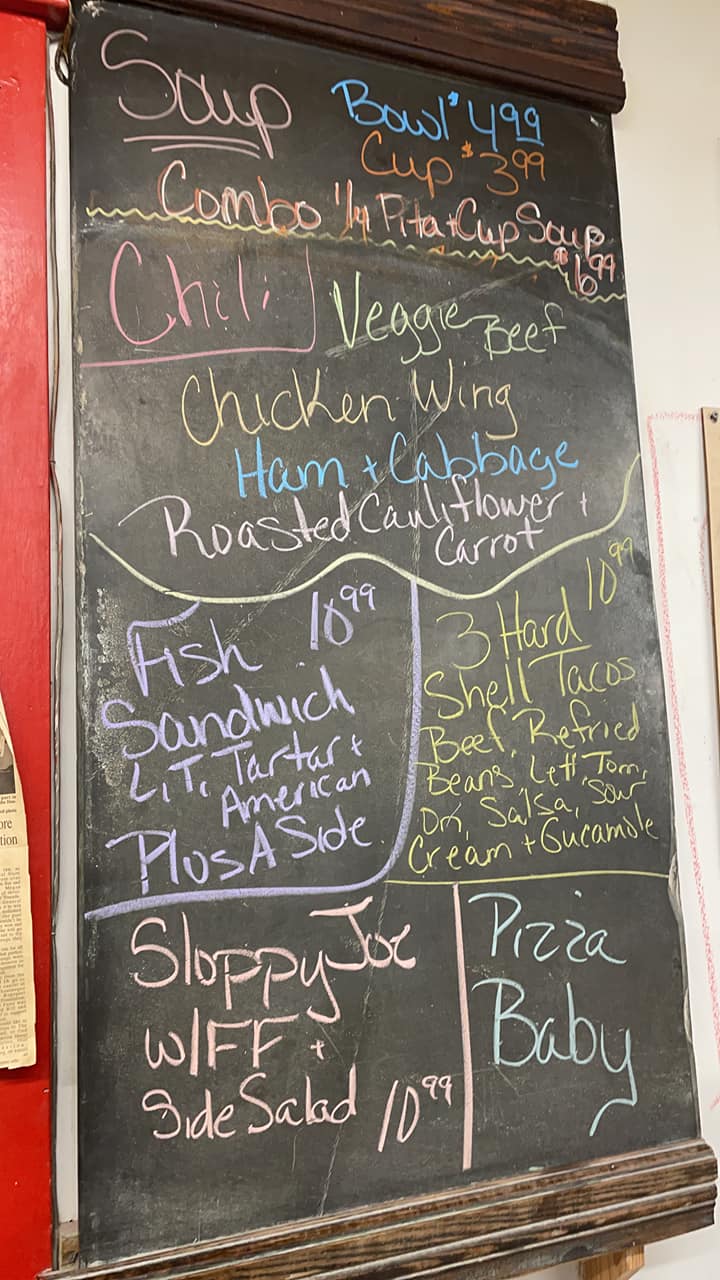 Soup Bowl $4.99
Cup $3.99
Combo 1/4 Pita + Cup Soup
$6.99
Chili Veggie Beef
Chicken Wing
Ham + Cabbage
Roasted Cauliflower +
Carrot
Fish 10.99
Sandwich
L,T, Tartar +
American
Plus A Side
3 Hard 10.99
Shell Tacos
Beef, Refried
Beans, Lett, Tom,
On, Salsa, Sour
Cream + Gucamole
Sloppy Joe
W/FF +
Side Salad 10.99
Pizza
Baby